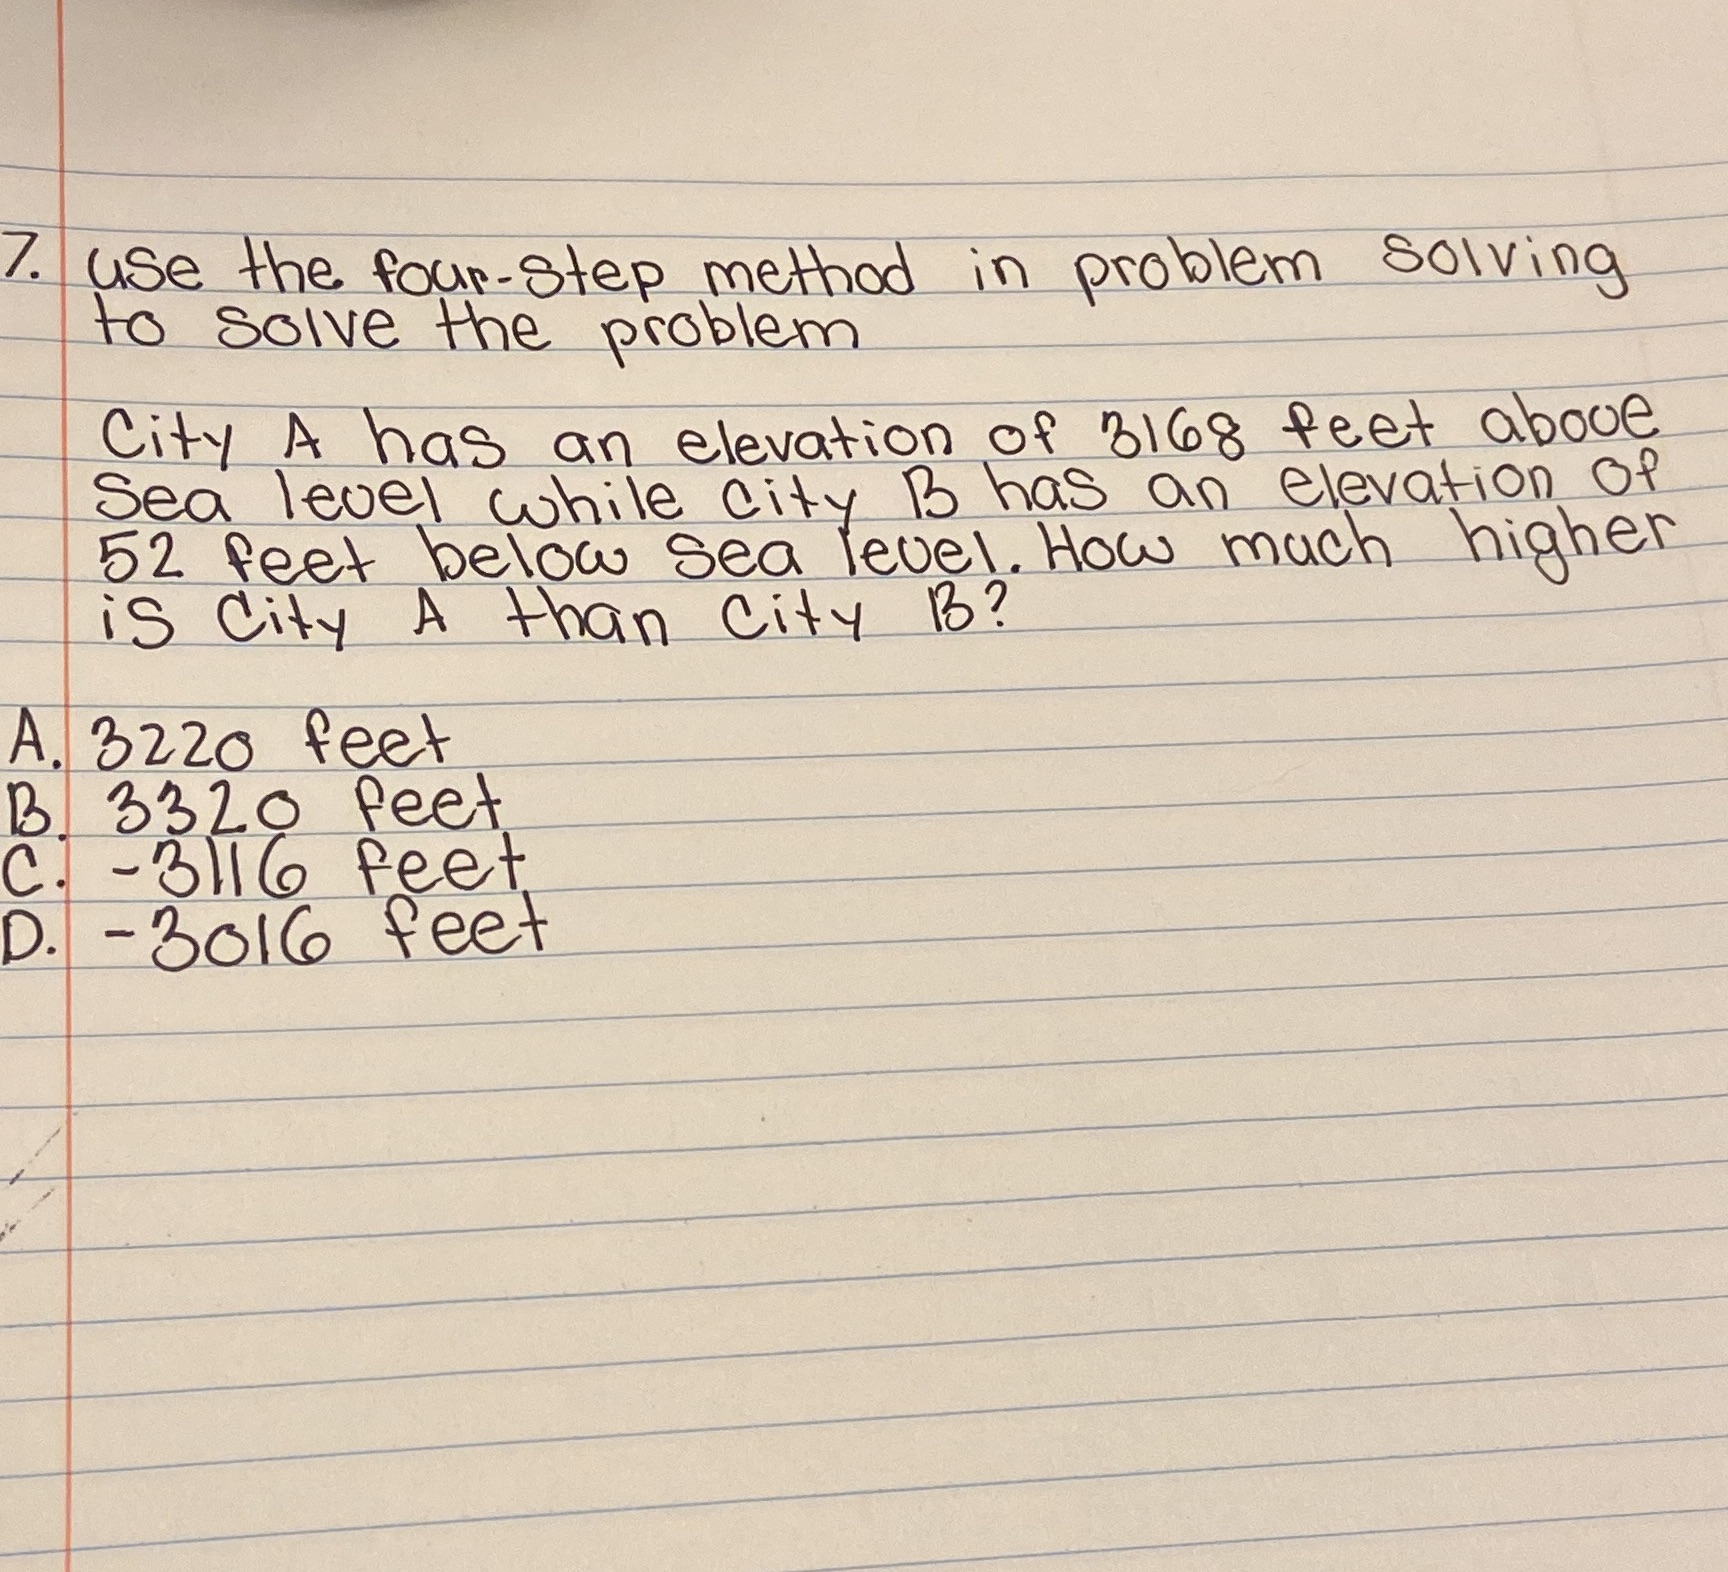 7. use the four-step method in problem solving
to solve the problem
City A has an elevation of 3168 feet above
Sea level while City B has an elevation of
52 feet below Sea level. How much higher
is City A than City B?
A. 3220 feet
B. 3320 feet
C. -3116 feet
D. -3016 feet